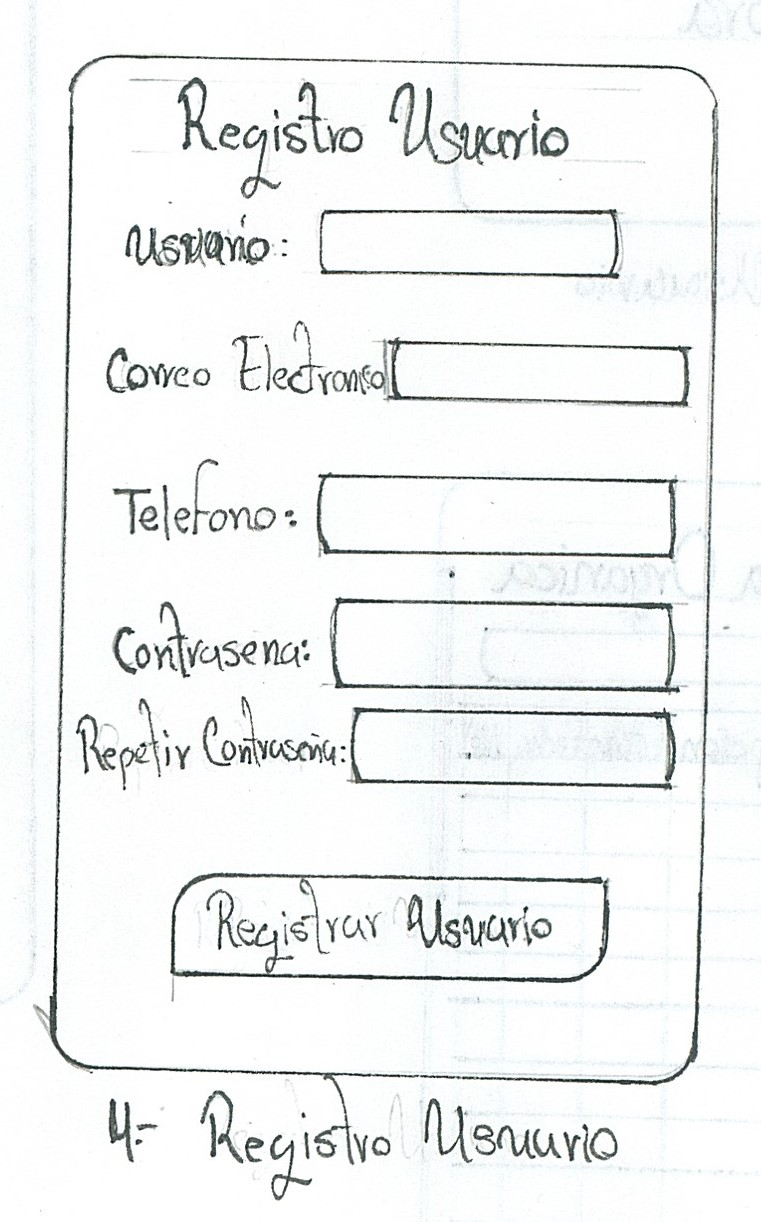 Registro Usuario
Usuario:
Correo Electronico
Telefono:
Contrasena:
Repetir Contraseña:
Registrar Usuario
4.- Registro Usuario